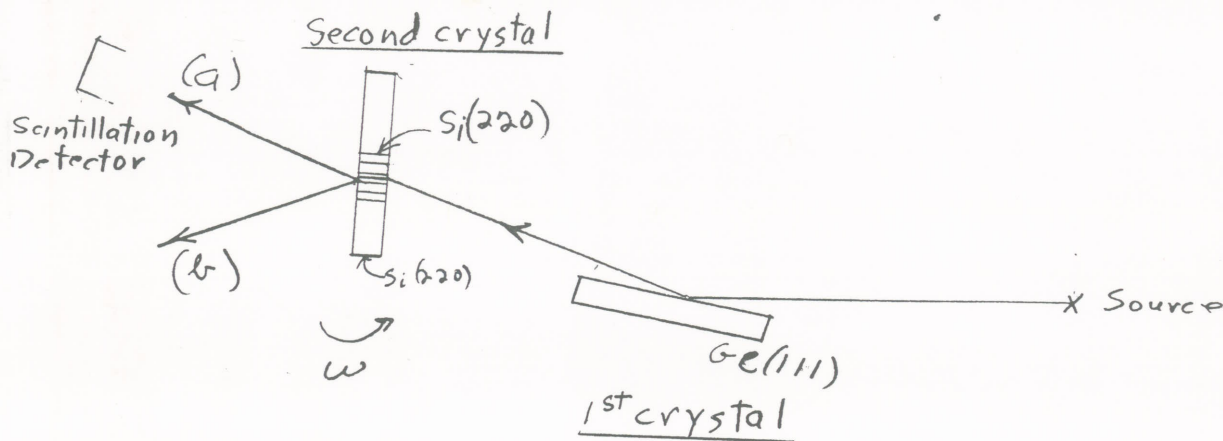 Second crystal
(a)
Si(220)
Scintillation
Detector
(b)
Si(220)
ω
X Source
Ge(111)
1st crystal